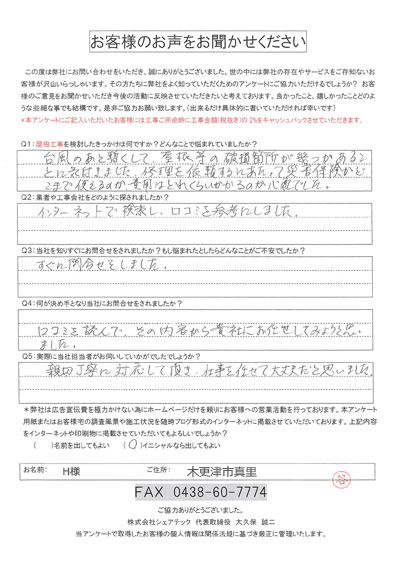 お客様のお声をお聞かせください
この度は弊社にお問い合わせをいただき、誠にありがとうございました。世の中には弊社の存在やサービスをご存知ないお
客様が沢山いらっしゃいます。その方たちに弊社をよく知っていただくためのアンケートにご協力いただけるでしょうか？ お客
様のご意見をお聞かせいただき今後の活動に反映させていただきたいと考えております。良かったこと、嬉しかったことどのよ
うな些細な事でも結構です。是非ご協力お願い致します。（出来るだけ具体的に書いていただければ幸いです）
*本アンケートにご記入いただいたお客様には工事ご用命時に工事金額（税抜き）の2%をキャッシュバックさせていただきます。
Q1：屋根工事を検討したきっかけは何ですか？どんなことで悩まれていましたか？
台風のあと暫くして、屋根等の破損箇所が幾つかあるこ
とに気付きました。修理を依頼するにあたって災害保険がど
こまで使えるのか費用はどれくらいかかるのか心配でした。
Q2：業者や工事会社をどのように探されましたか？
インターネットで検索し、口コミを参考にしました。
Q3：当社を知りすぐにお問合せをされましたか？もし悩まれたとしたらどんなことがご不安でしたか？
すぐに問合せをしました。
Q4：何が決め手となり当社にお問合せをされましたか？
口コミを読んで、その内容から貴社にお任せしてみようと思い
ました。
Q5：実際に当社担当者がお伺いしていかがでしたでしょうか？
親切丁寧に対応して頂き、仕事を任せて大丈夫だと思いました。
*弊社は広告宣伝費を極力かけない為にホームページだけを頼りにお客様への営業活動を行っております。本アンケート
用紙またはお客様宅の調査風景や施工状況を随時ブログ形式のインターネットに掲載させていただいております。上記内容
をインターネットや印刷物に掲載させていただいてもよろしいでしょうか？
（　）名前を出してもよい　（○）イニシャルなら出してもよい
お名前： H様　ご住所： 木更津市真里 谷
FAX 0438-60-7774
ご協力ありがとうございました。
株式会社シェアテック　代表取締役　大久保　誠二
当アンケートで取得したお客様の個人情報は関係法規に基づき厳正に管理いたします。